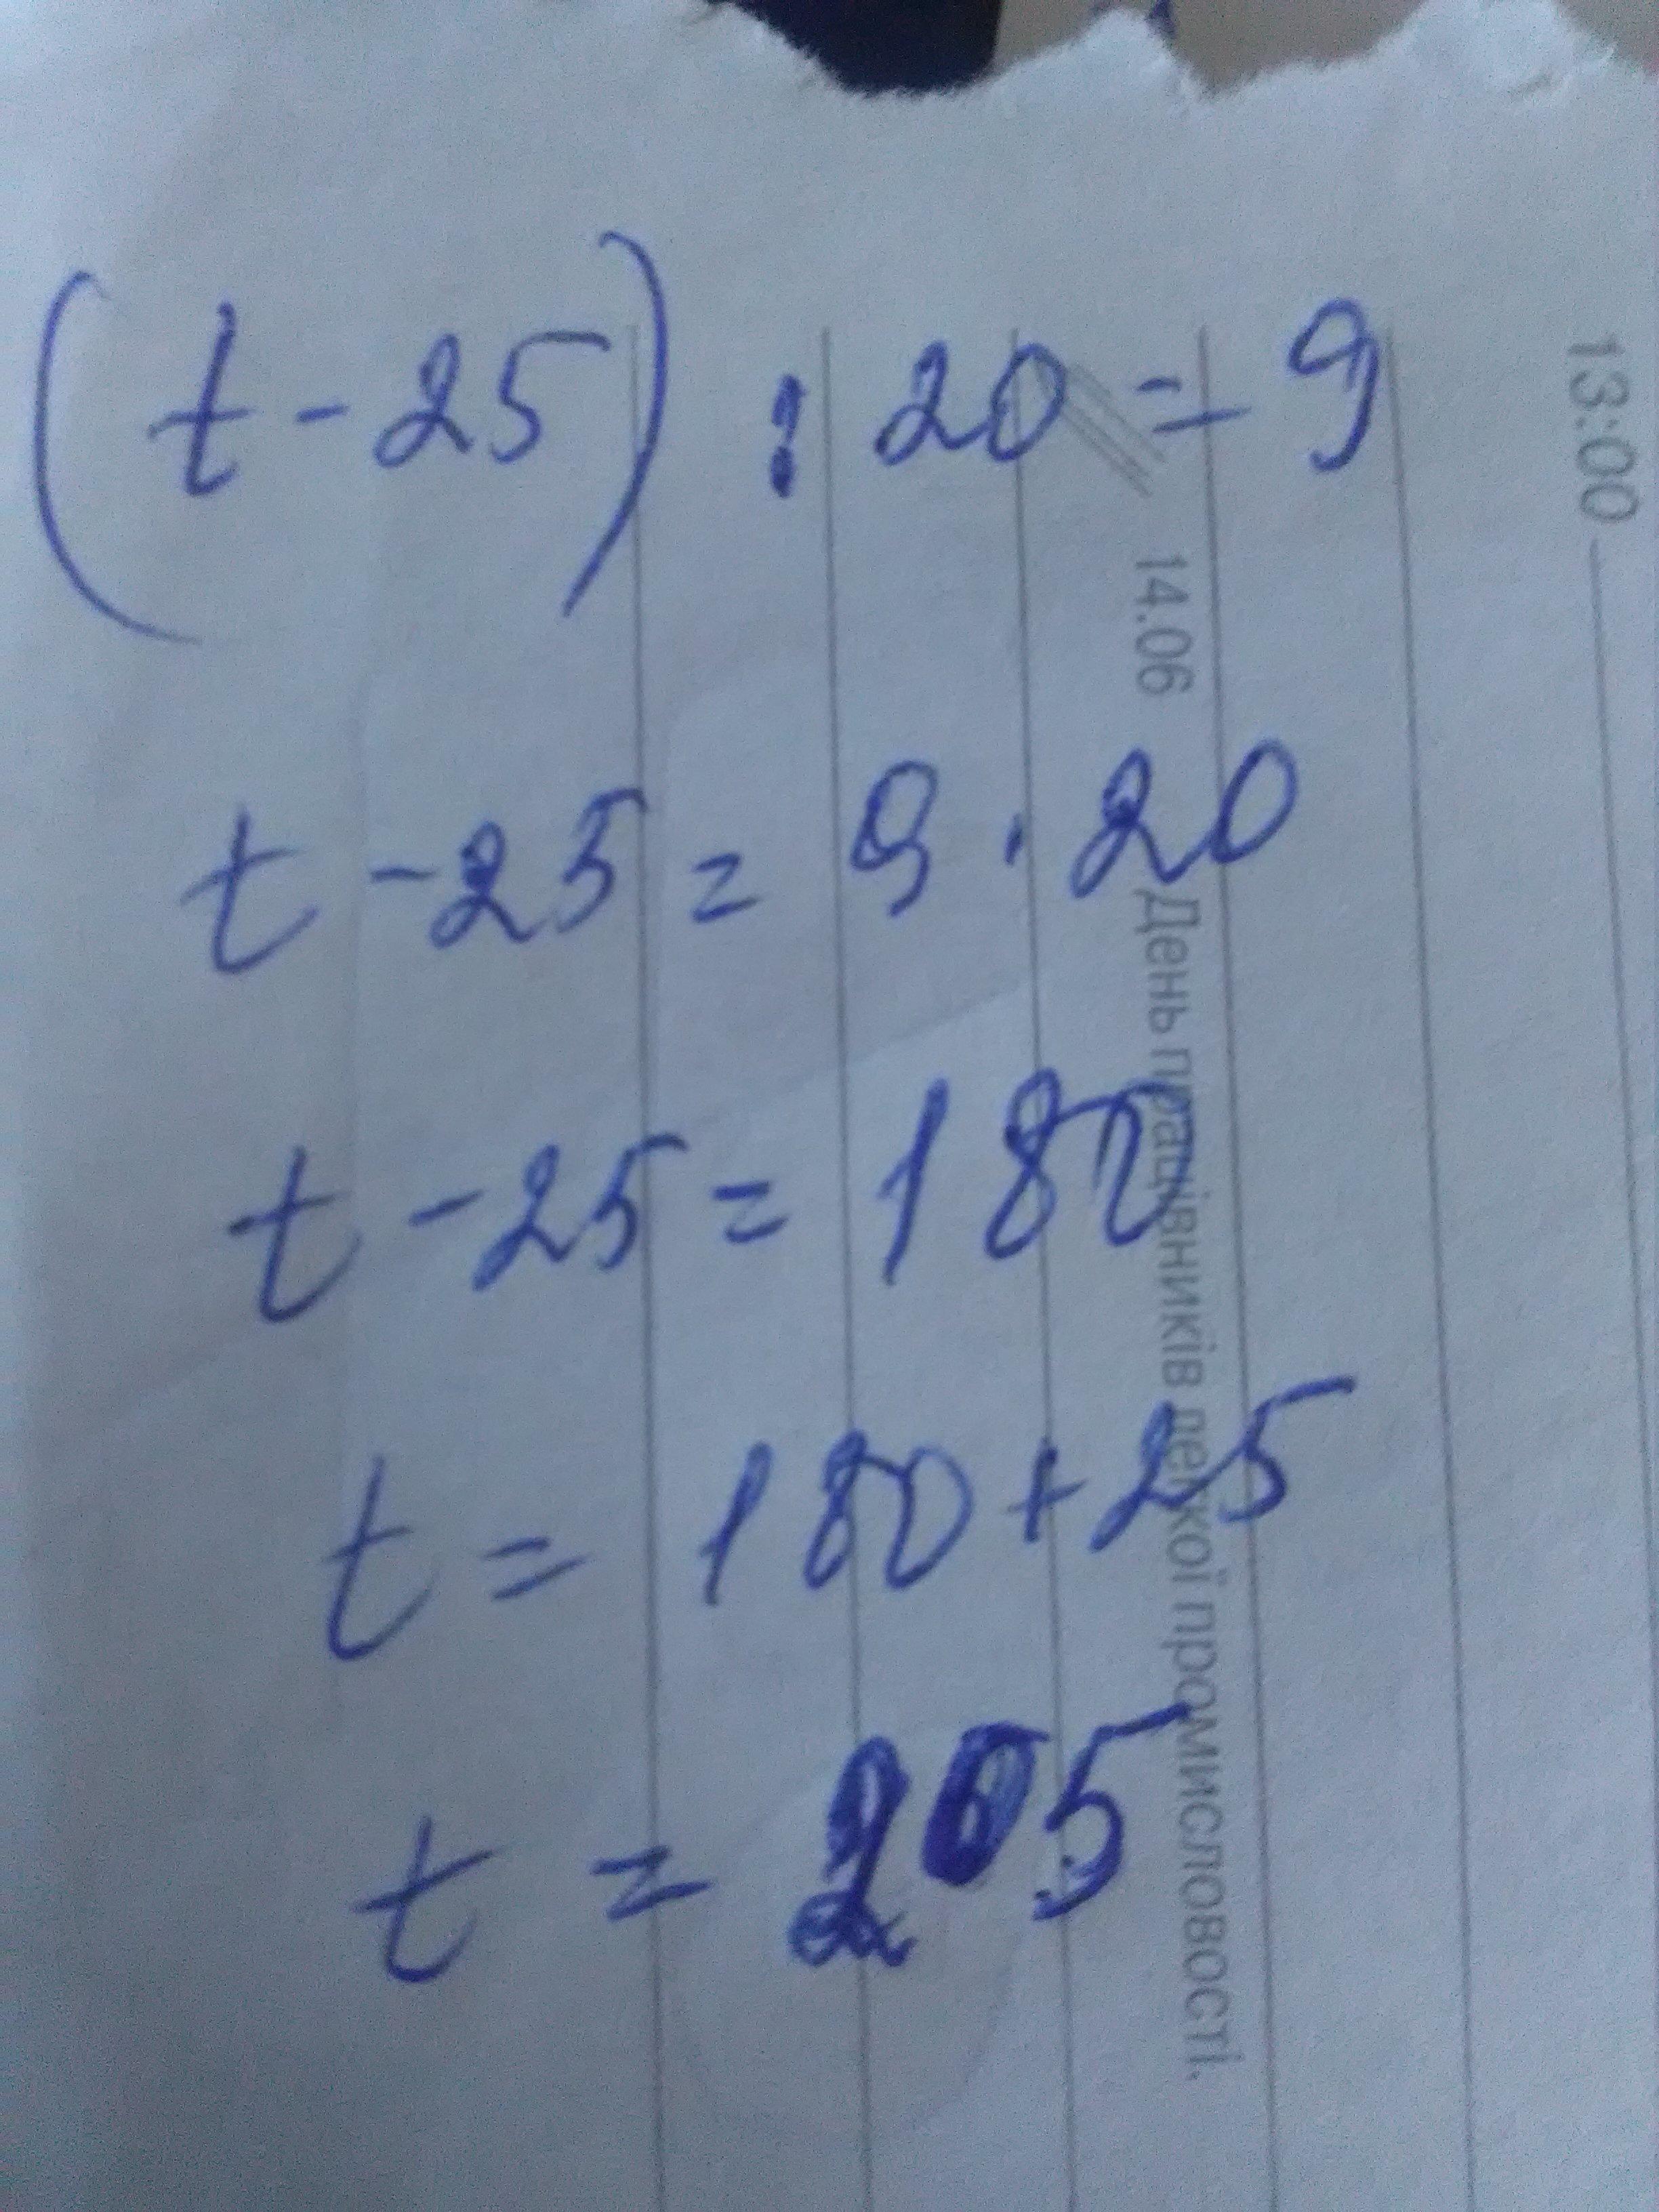 (t-25) : 20 = 9
t - 25 = 9 · 20
t - 25 = 180
t = 180 + 25
t = 205
13:00
14.06 День працівників легкої промисловості.